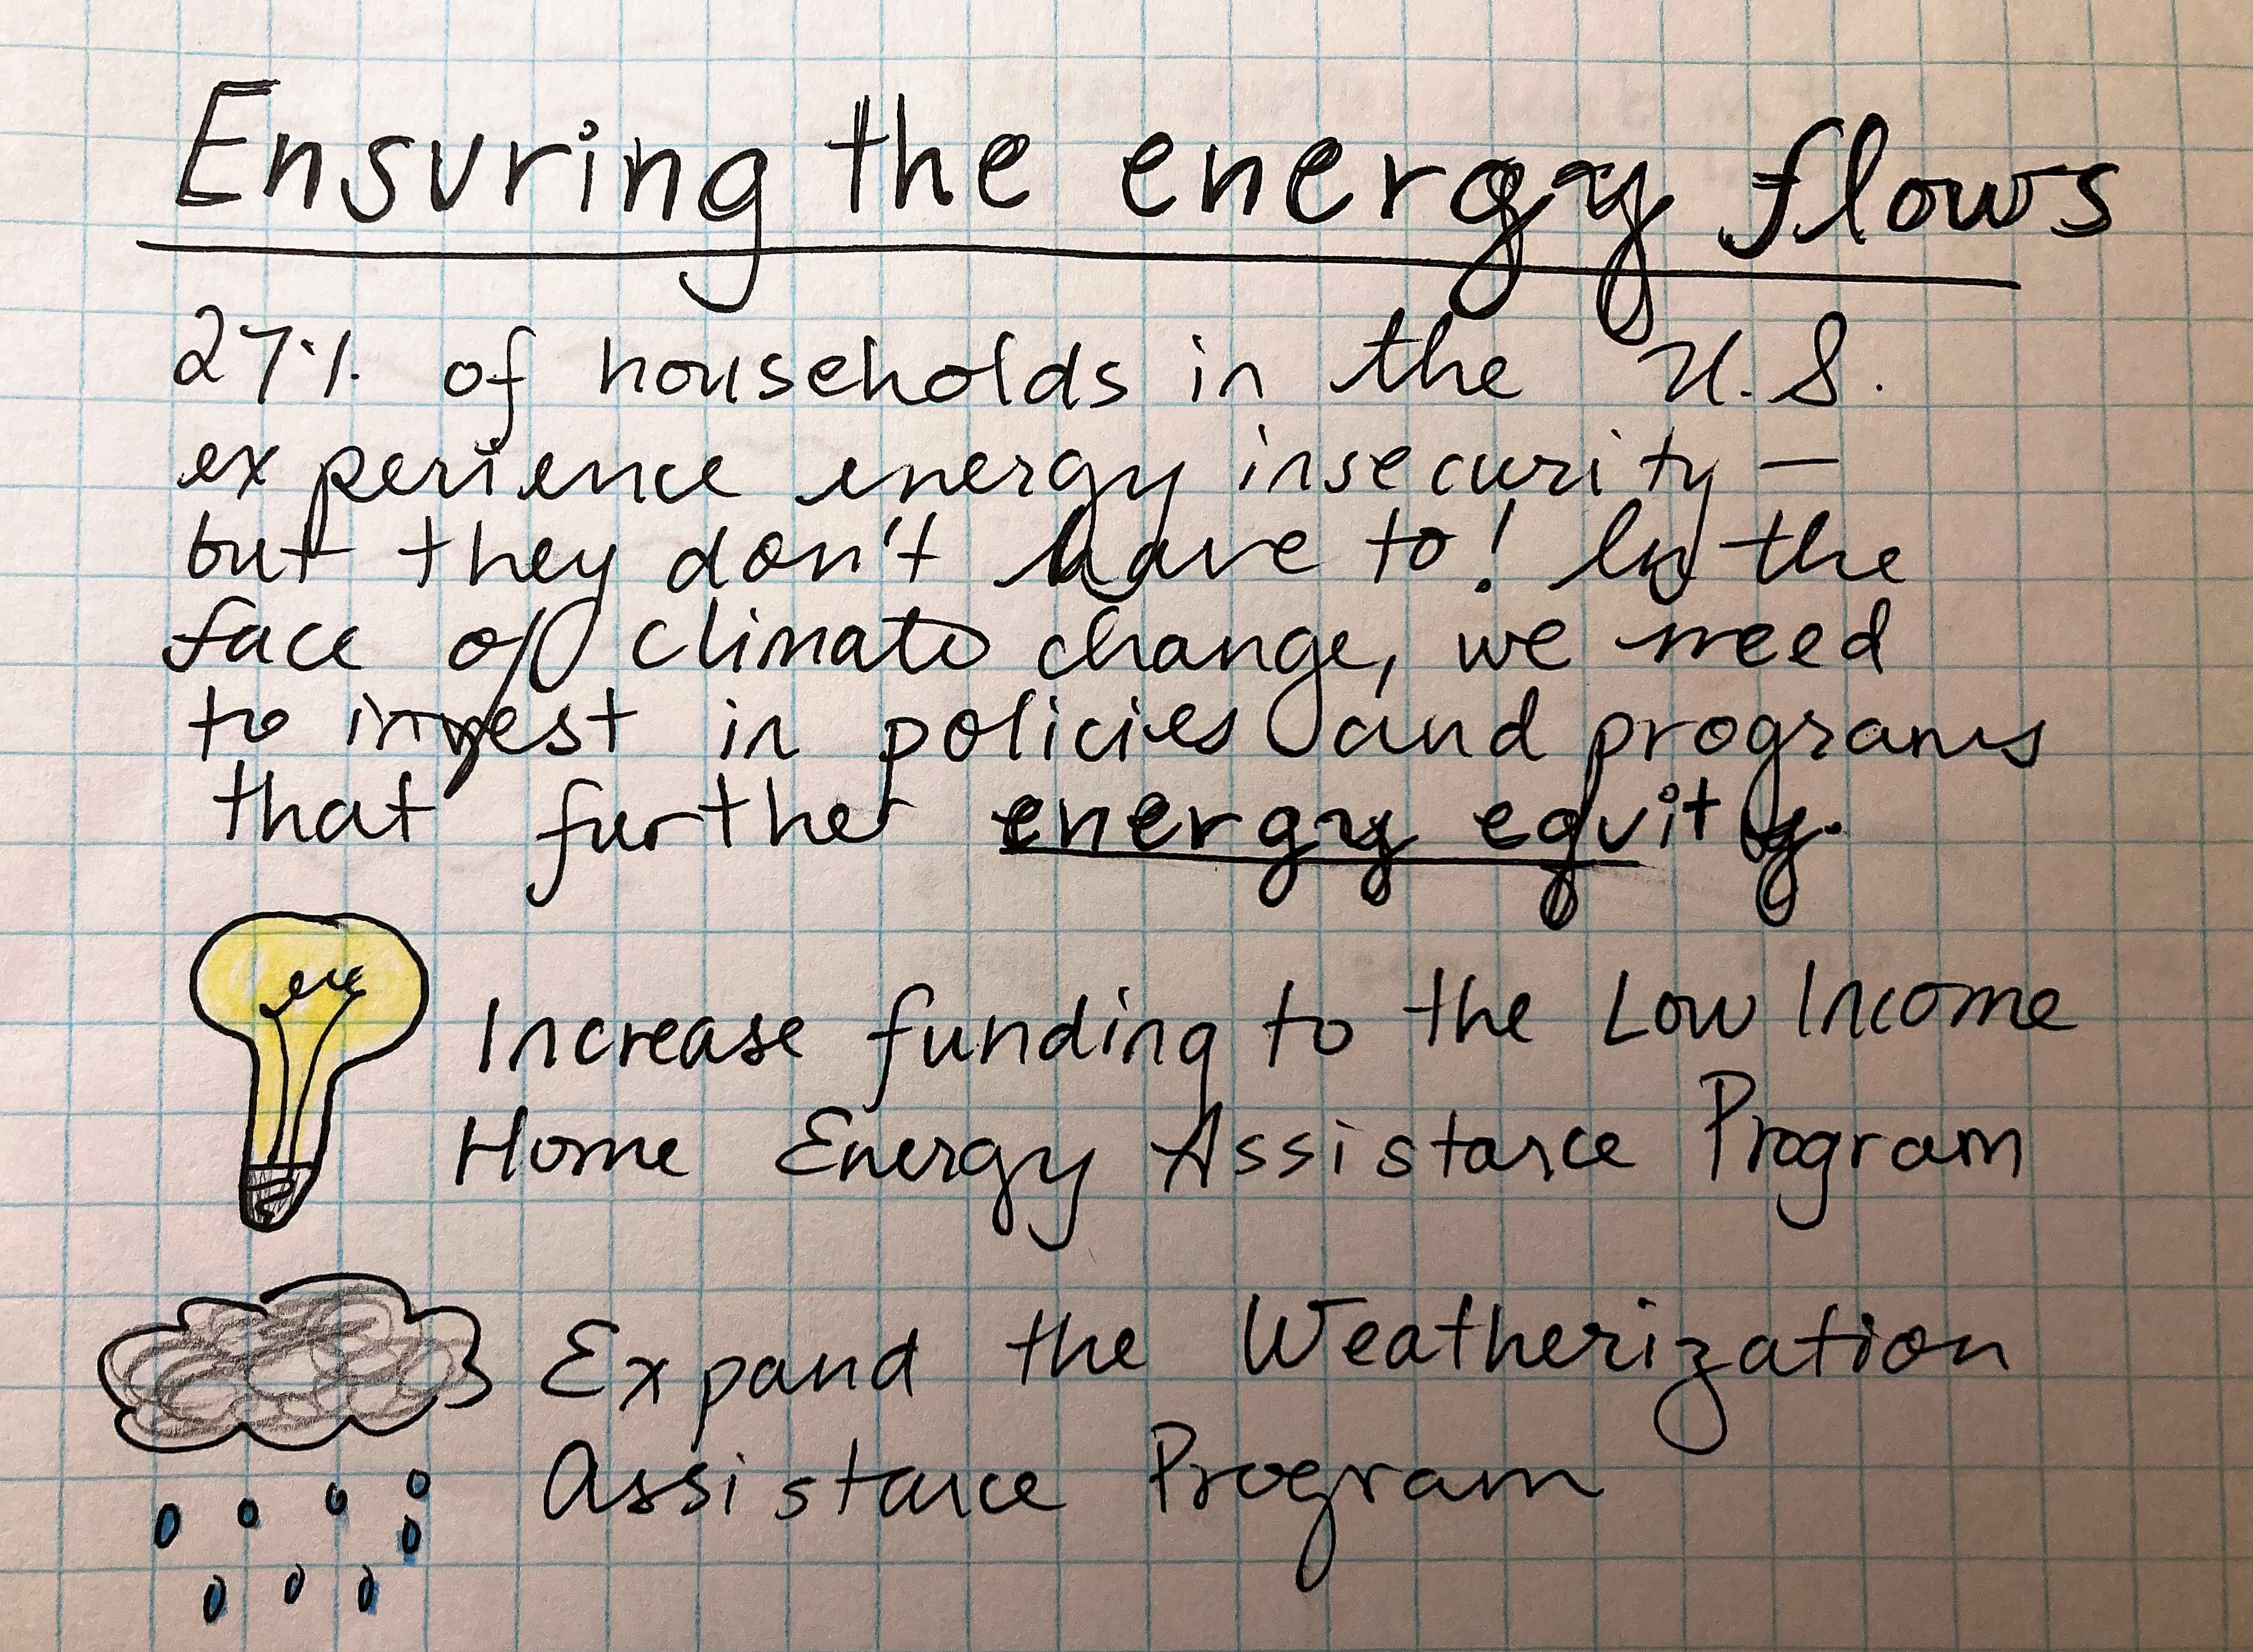 Ensuring the energy flows
27% of households in the U.S.
experience energy insecurity —
but they don't have to! In the
face of climate change, we need
to invest in policies and programs
that further energy equity.
Increase funding to the Low Income
Home Energy Assistance Program
Expand the Weatherization
Assistance Program